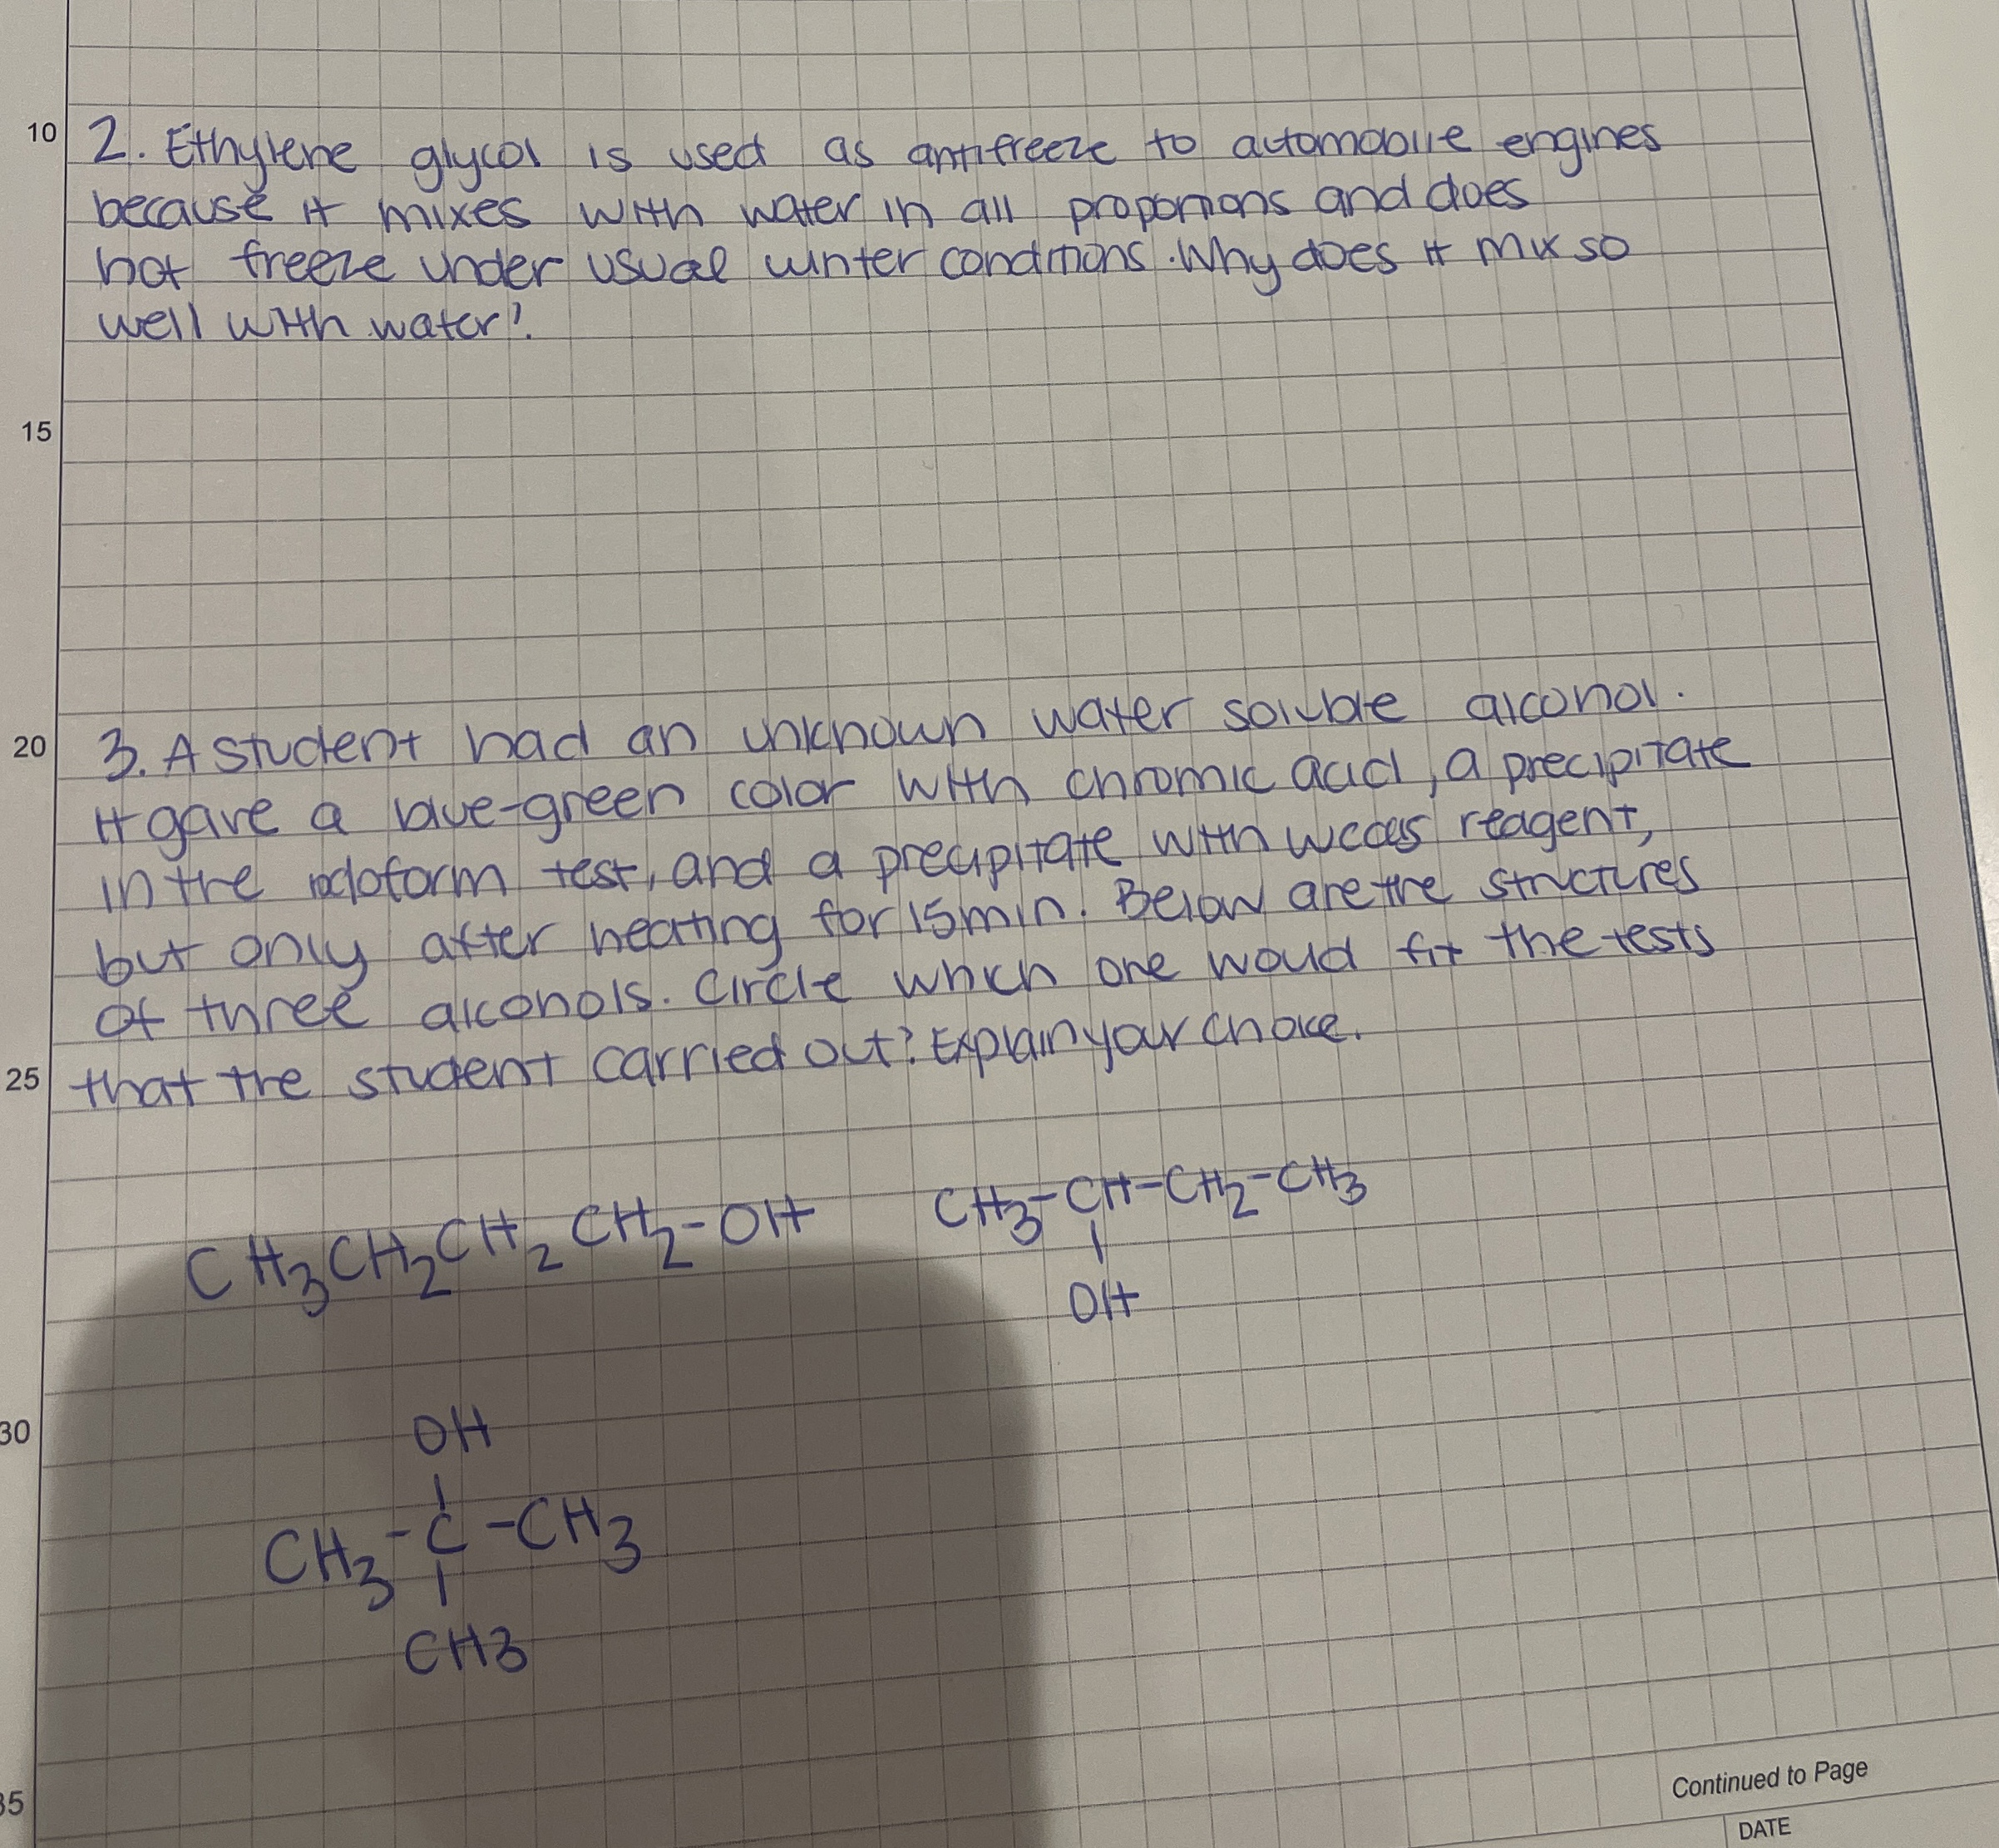 10
2. Ethylene glycol is used as antifreeze to automobile engines
because it mixes with water in all proportions and does
not freeze under usual winter conditions. Why does it mix so
well with water?
15
20
3. A student had an unknown water soluble alcohol.
It gave a blue-green color with chromic acid, a precipitate
in the iodoform test, and a precipitate with Lucas reagent,
but only after heating for 15 min. Below are the structures
of three alcohols. Circle which one would fit the tests
25
that the student carried out? Explain your choice.
CH3CH2CH2CH2-OH CH3-CH-CH2-CH3
|
OH
30
OH
|
CH3-C-CH3
|
CH3
35
Continued to Page
DATE